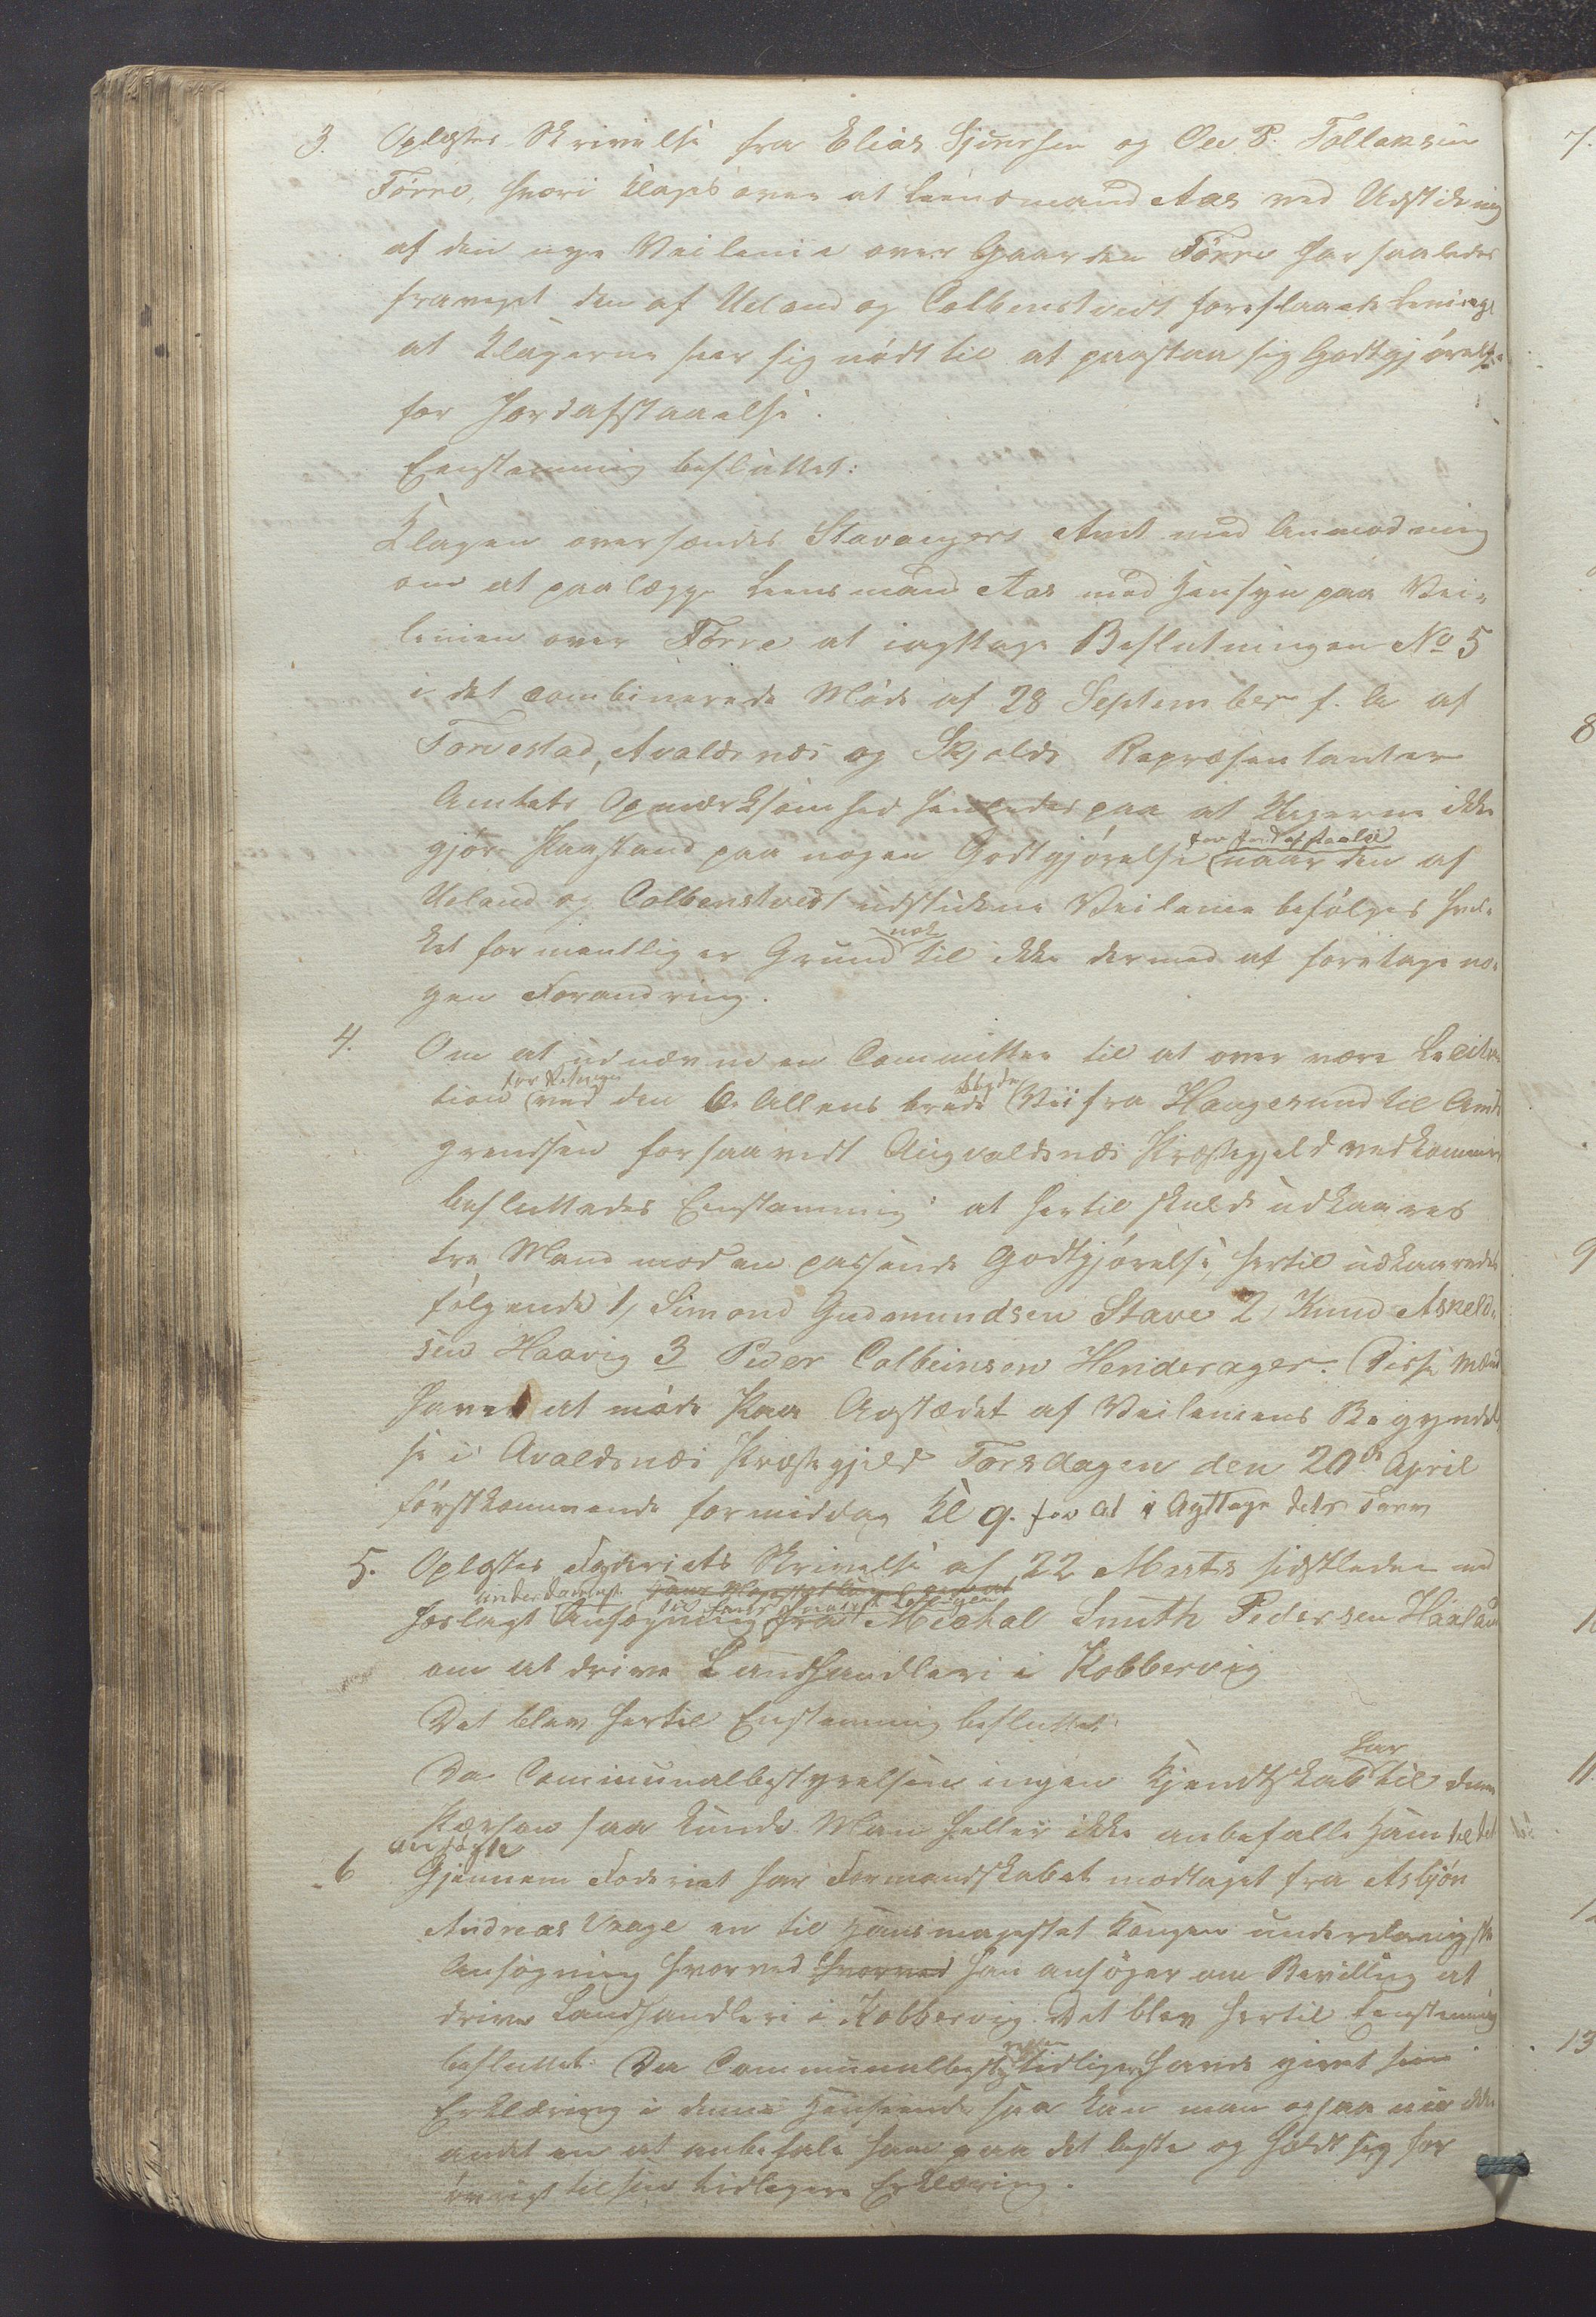 3. Oplæstes Skrivelse fra Elias Sjursen og Ole P. Tollaksen
Førre, hvori klages over at Leensmand Aas ved Udstikning
af den nye Veilenie over Gaarden Førre har saaledes
fraveget den af Ueland og Colbenstvedt foreslaaede Lenie
at Klagerne seer sig nødt til at paastaa sig Godtgjørelse
for Jordafstaaelse.
Eenstemmig besluttet:
Klagen oversændes Stavangers Amt med Anmodning
om at paalægge Leensmand Aas med Hensyn paa Vei-
lenien over Førre at iagttage Beslutningen No 5
i det combinerede Møde af 28 September f. A. af
Torvestad, Avaldsnæs og Skjolds Repræsentanter
Amtets Opmærksomhed henledes paa at Klagerne ikke
gjør Paastand paa nogen Godtgjørelse for Jordafstaalse naar den af
Ueland og Colbenstvedt udstukne Veilenie befølges hvil-
ket formentlig er Grund nok til ikke dermed at foretage no-
gen Forandring.
4. Om at udnævne en Committee til at overvære Licita-
tion for Veiens ved den 6 Allens brede Vei fra Haugesund til Amts
grendsen forsaavidt Augvaldsnæs Præstegjeld vedkommer
besluttedes Enstemmig: at hertil skulde udkaares
tre Mand mod en passende Godtgjørelse, hertil udkaaredes
følgende 1, Simond Gudmundsen Stave 2, Knud Askeld-
sen Haavig 3 Peder Colbeinsen Henderager. Disse Mænd
haver at møde paa Aastædet af Veileniens Begyndel-
se i Avaldsnæs Præstegjeld Torsdagen den 20de April
førstkommende formiddag Kl 9. for at iagttage dets Tarv
5. Oplæstes Fogderiets Skrivelse af 22 Marts sidstleden med
underdanigst
Forlagt Ansøgning fra Michal Smith Pedersen
om at drive Landhandleri i Kobbervig
Det blev hertil Enstemmig besluttet:
Da Communalbestyrelsen ingen Kjendskab har til denne
Person saa kunde Man heller ikke anbefalle ham til det
ansøgte
6 Gjennem Foderiet har Formandskabet modtaget fra Asbjøn
Andreas Vrage en til Hans majestæt Kongen underdanigste
Ansøgning hvorved hvorved han ansøger om Bevilling at
drive Landhandleri i Kobbervig. Det blev hertil Eenstemmig
besluttet: Da Communalbesty relsen tidligere havde givet sin
Erklæring i denne Henseende saa kan man ogsaa nu ikke
andet en at anbefale ham paa det beste og holdt sig for
øvrigt til sin tidligere Erklæring.
7.
8
9
10
11.
12
13